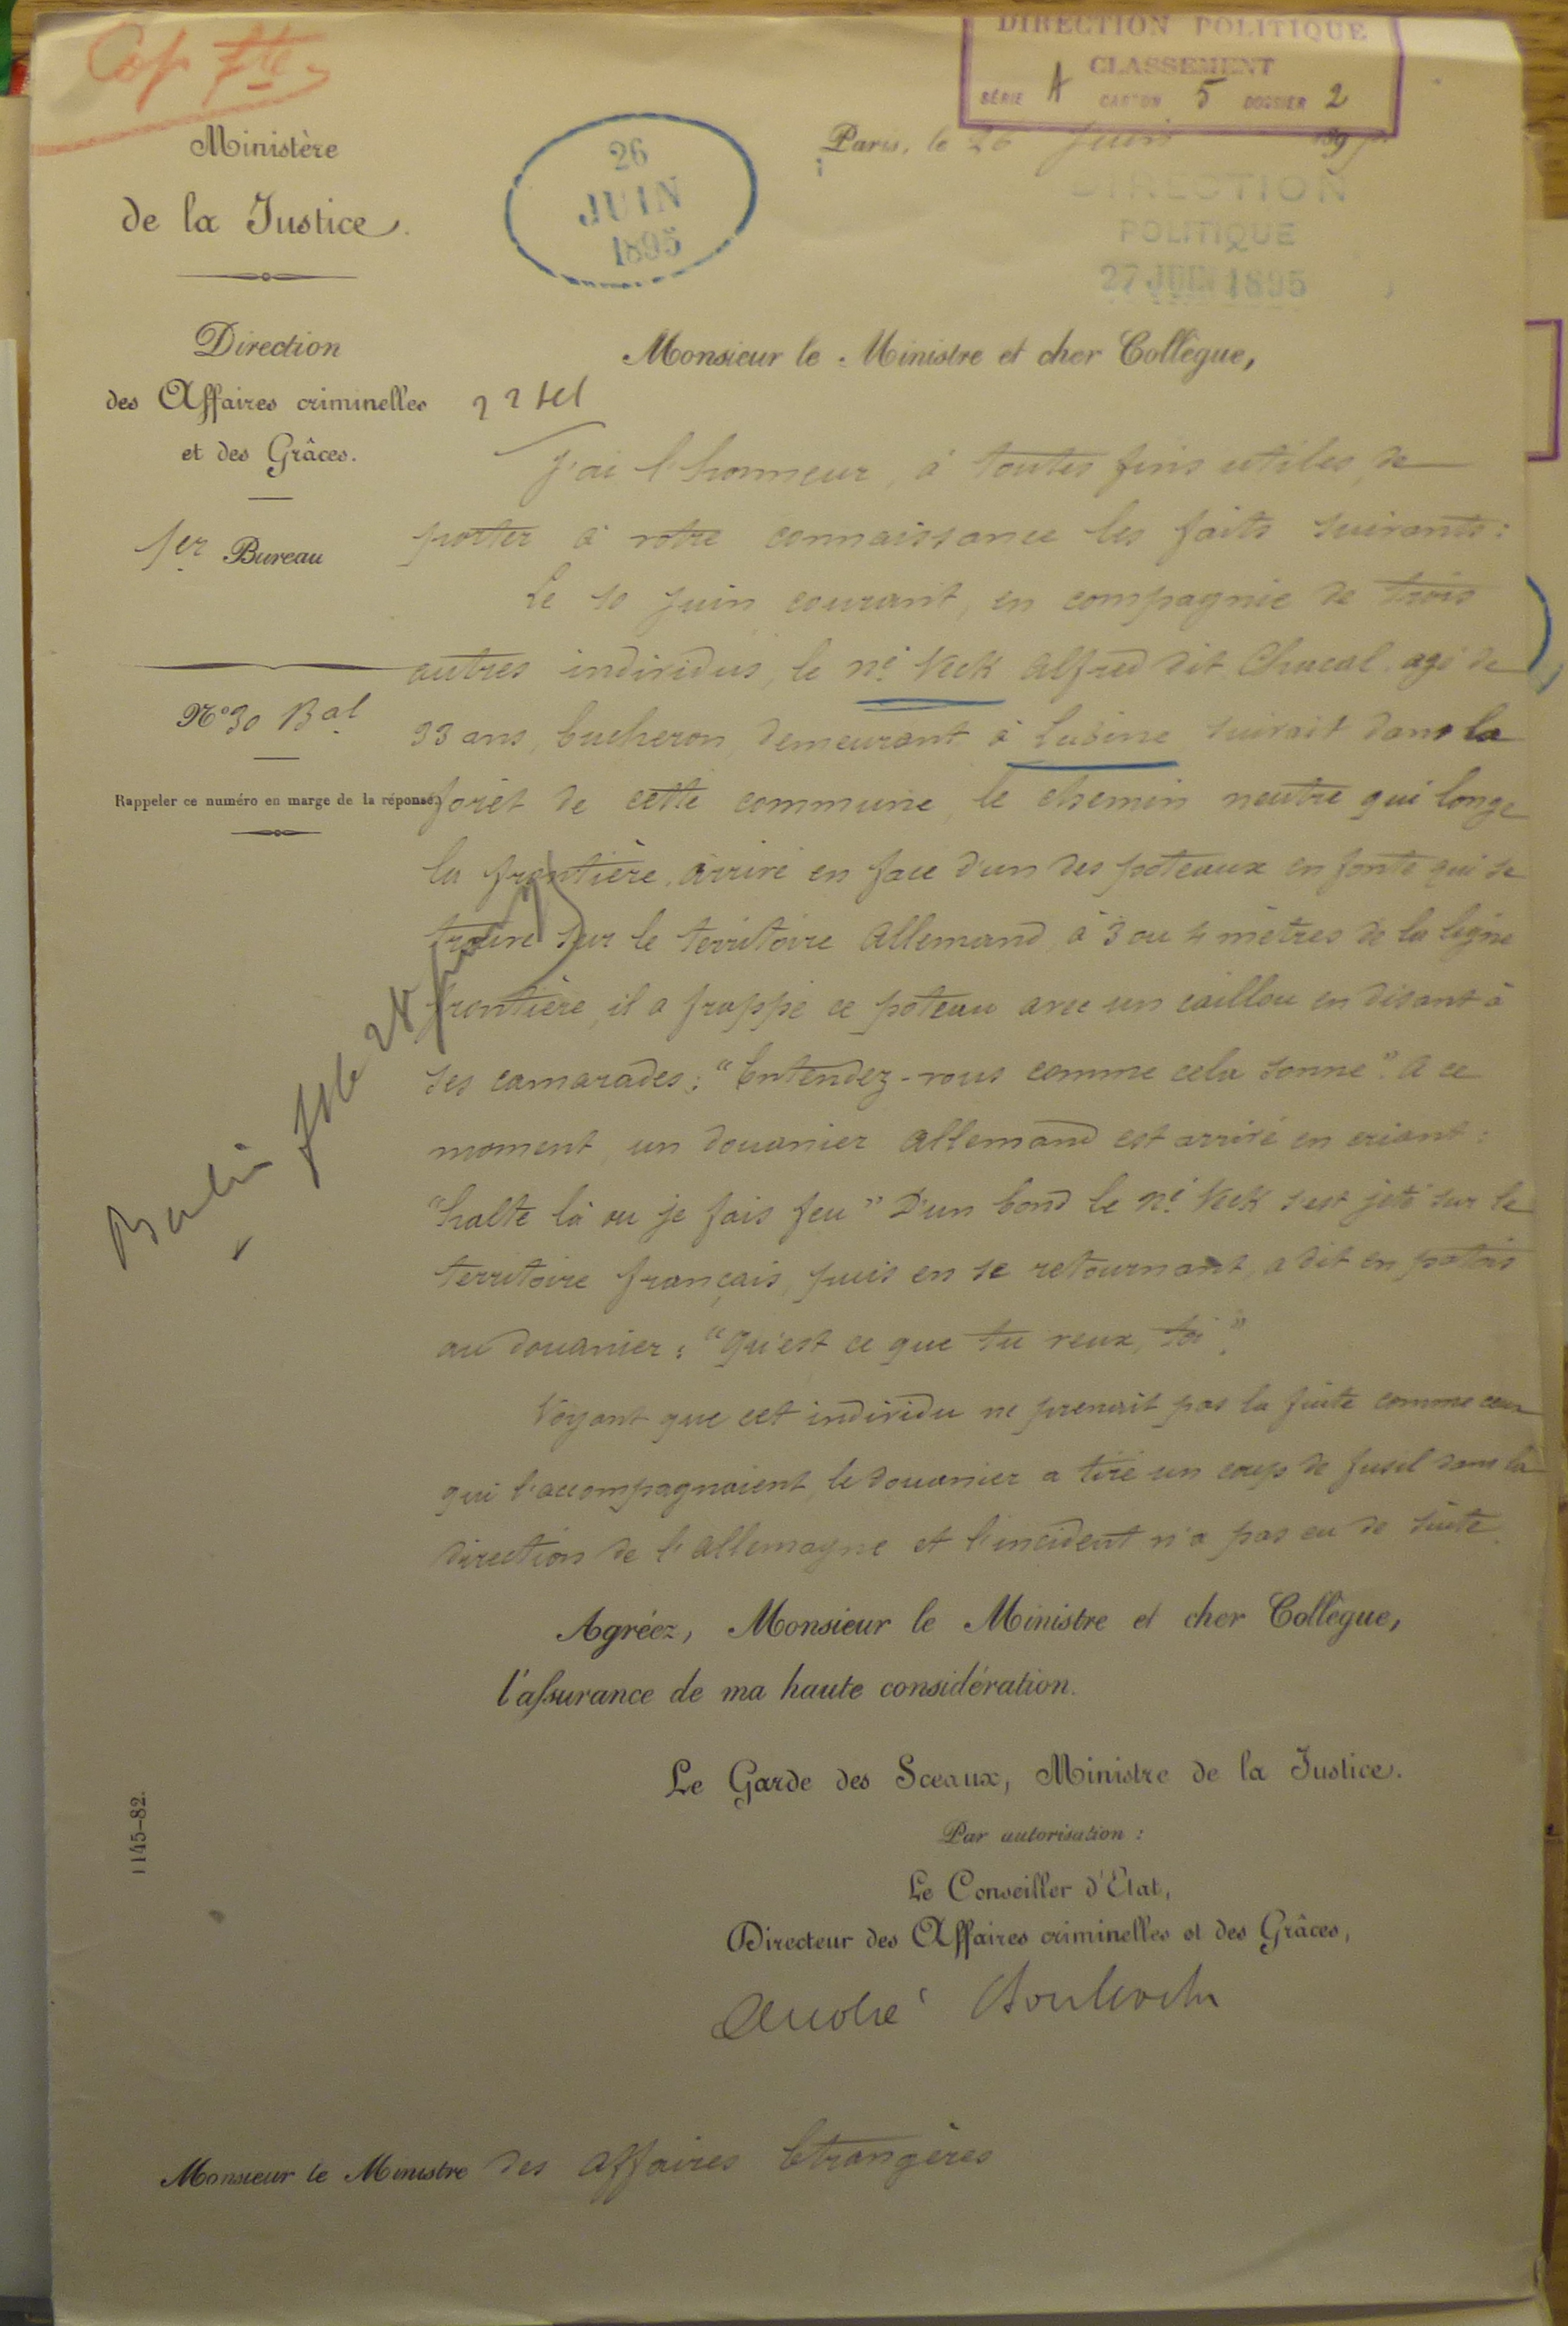 Cop
DIRECTION POLITIQUE
CLASSEMENT
SÉRIE A CARTON 5 DOSSIER 2
Ministère
de la Justice.
26
JUIN
1895
Paris, le 26 Juin 189
DIRECTION
POLITIQUE
27 JUIN 1895
Direction
des Affaires criminelles
et des Grâces.
1er Bureau
N° 30 Bal
Rappeler ce numéro en marge de la réponse.
Monsieur le Ministre et cher Collègue,
J'ai l'honneur, à toutes fins utiles, de
porter à votre connaissance les faits suivants :
Le 10 Juin courant, en compagnie de trois
autres individus, le né Veck Alfred dit Chacal, agé de
33 ans, bucheron, demeurant à Lubine suivait dans la
forêt de cette commune, le chemin neutre qui longe
la frontière, arrivé en face d'un des poteaux en fonte qui se
trouve sur le territoire Allemand, à 3 ou 4 mètres de la ligne
frontière, il a frappé ce poteau avec un caillou en disant à
ses camarades : "Entendez-vous comme cela sonne". A ce
moment, un douanier Allemand est arrivé en criant :
"halte là ou je fais feu" D'un bond le né Veck s'est jeté sur le
territoire français, puis en se retournant, a dit en patois
au douanier : "Qu'est ce que tu veux, toi".
Voyant que cet individu ne prenait pas la fuite comme ceux
qui l'accompagnaient, le douanier a tiré un coup de fusil dans la
direction de l'Allemagne et l'incident n'a pas eu de suite.
Berlin
Agréez, Monsieur le Ministre et cher Collègue,
l'assurance de ma haute considération.
Le Garde des Sceaux, Ministre de la Justice.
Par autorisation :
Le Conseiller d'Etat,
Directeur des Affaires criminelles et des Grâces,
André Boulloche
1145-82.
Monsieur le Ministre des Affaires Etrangères